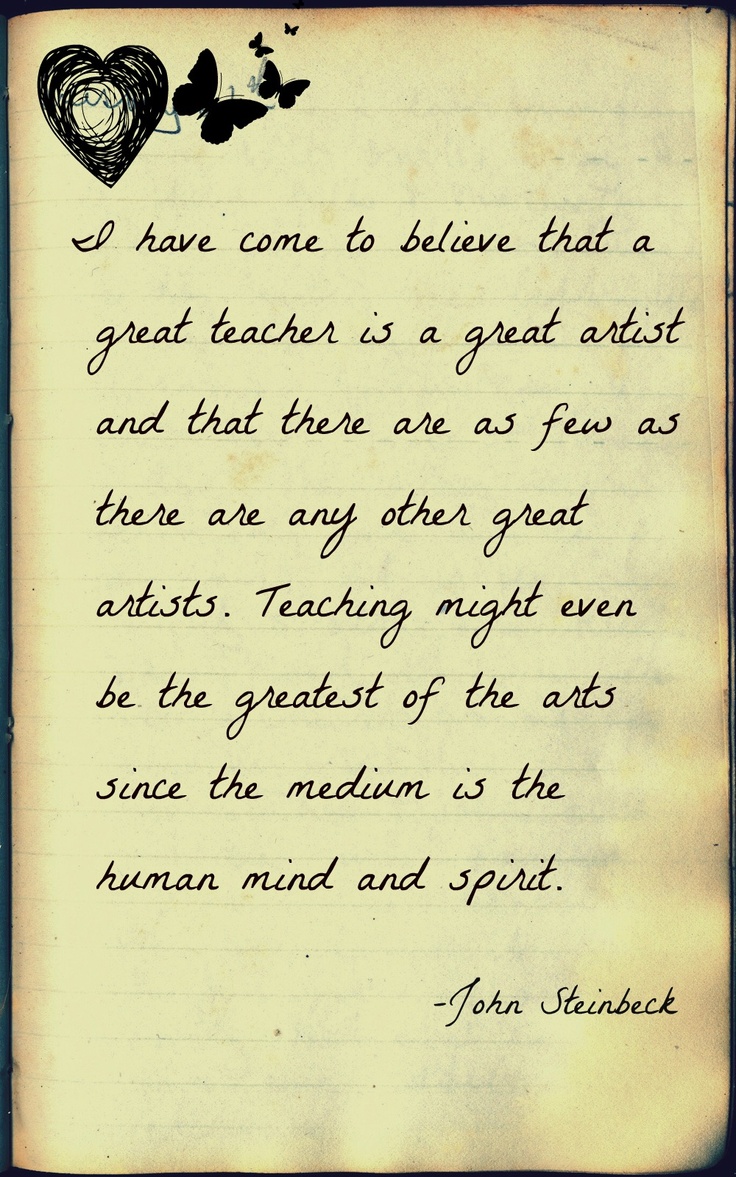 I have come to believe that a
great teacher is a great artist
and that there are as few as
there are any other great
artists. Teaching might even
be the greatest of the arts
since the medium is the
human mind and spirit.
-John Steinbeck